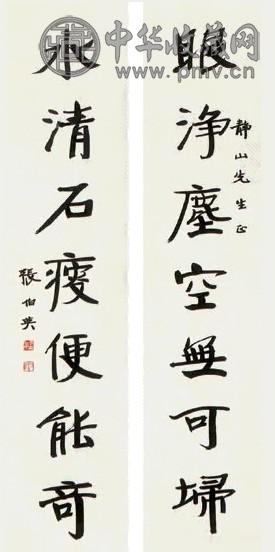 中华收藏网
www.pmv.cn
眼浄塵空無可埽
静山先生正
秋清石瘦便能奇
張伯英